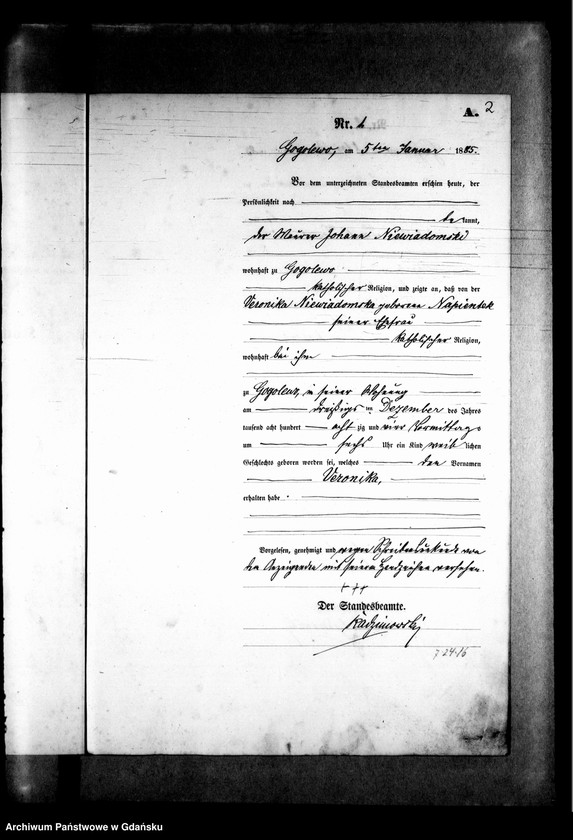 A. 2
Nr. 1
Gogolewo, am 5ten Januar 1885.
Vor dem unterzeichneten Standesbeamten erschien heute, der
Persönlichkeit nach
be kannt,
der Maurer Johann Niewiadomski
wohnhaft zu Gogolewo
katholischer Religion, und zeigte an, daß von der
Veronika Niewiadomska geborenen Napientek
seiner Ehefrau
katholischer Religion,
wohnhaft bei ihm
zu Gogolewo, in seiner Wohnung
am dreißigsten Dezember des Jahres
tausend acht hundert acht zig und vier Vormittags
um sechs Uhr ein Kind weib lichen
Geschlechts geboren worden sei, welches den Vornamen
Veronika,
erhalten habe.
Vorgelesen, genehmigt und wegen Schreibensunkunde von
dem Anzeigenden mit seinem Handzeichen versehen.
+++
Der Standesbeamte.
Radzimowski
Archiwum Państwowe w Gdańsku